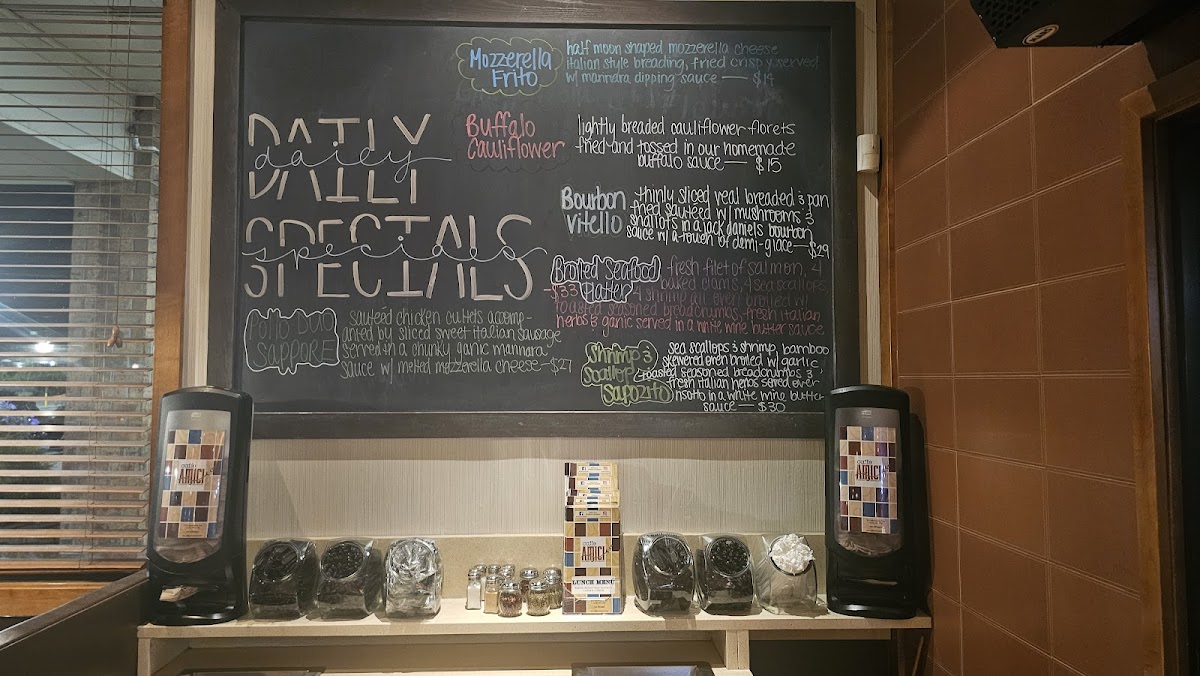 Mozzerella
Frito
half moon shaped mozzerella cheese
italian style breading, fried crisp served
w/ marinara dipping sauce — $14
Buffalo
Cauliflower
lightly breaded cauliflower florets
fried and tossed in our homemade
buffalo sauce — $15
DAILY
daily
SPECIALS
specials
Bourbon
Vitello
thinly sliced veal breaded & pan
fried sauteed w/ mushrooms &
shallots in a jack daniels bourbon
sauce w/ a touch of demi-glace — $29
Broiled Seafood
Platter
$33
fresh filet of salmon, 4
baked clams, 4 sea scallops
4 shrimp all oven broiled w/
toasted seasoned breadcrumbs, fresh italian
herbs & garlic served in a white wine butter sauce
Pollo Duo
Sappore
sauteed chicken cutlets accomp-
anied by sliced sweet italian sausage
served in a chunky garlic marinara
sauce w/ melted mozzarella cheese — $27
Shrimp &
Scallop
Sapozito
sea scallops & shrimp, bamboo
skewered oven broiled w/ garlic,
toasted seasoned breadcrumbs &
fresh italian herbs served over
risotto in a white wine butter
sauce — $30
caffe
AMICI
caffe
AMICI
caffe
AMICI
LUNCH MENU